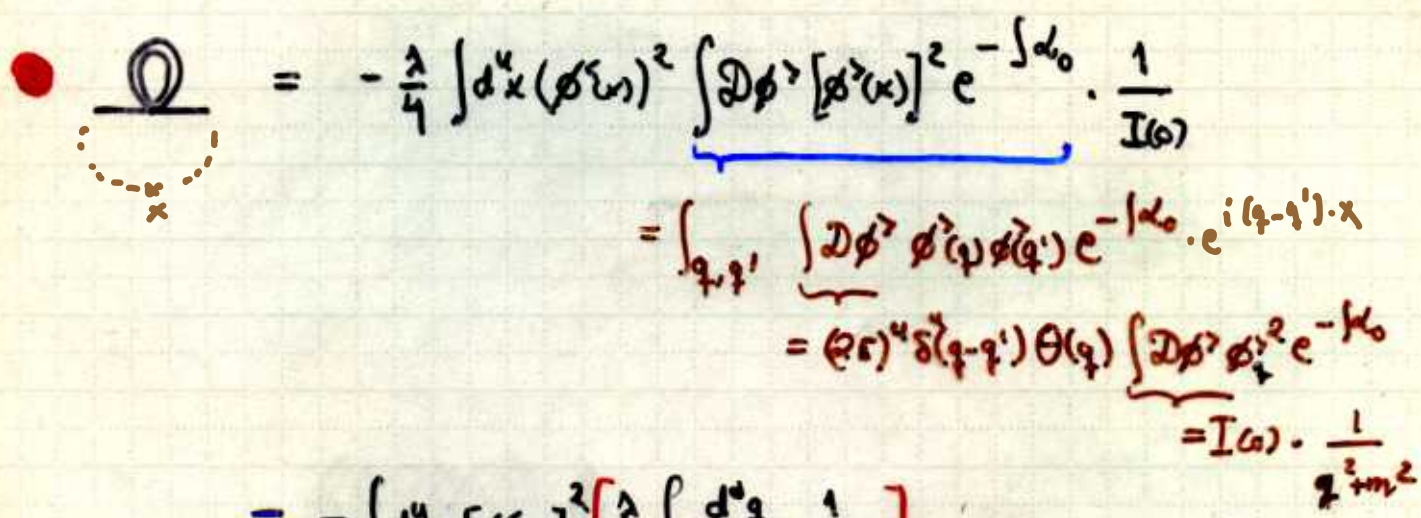 = - λ/4 ∫d⁴x (ϕ^<(x))² ∫Dϕ^> [ϕ^>(x)]² e^{-∫ℒ₀} · 1/I(0)
x
= ∫_{q,q'} ∫Dϕ^> ϕ^>(q) ϕ^>(q') e^{-∫ℒ₀} · e^{i(q-q')·x}
= (2π)⁴ δ⁴(q-q') Θ(q) ∫Dϕ^> ϕ^>_q² e^{-∫ℒ₀}
= I(0) · 1/(q²+m²)